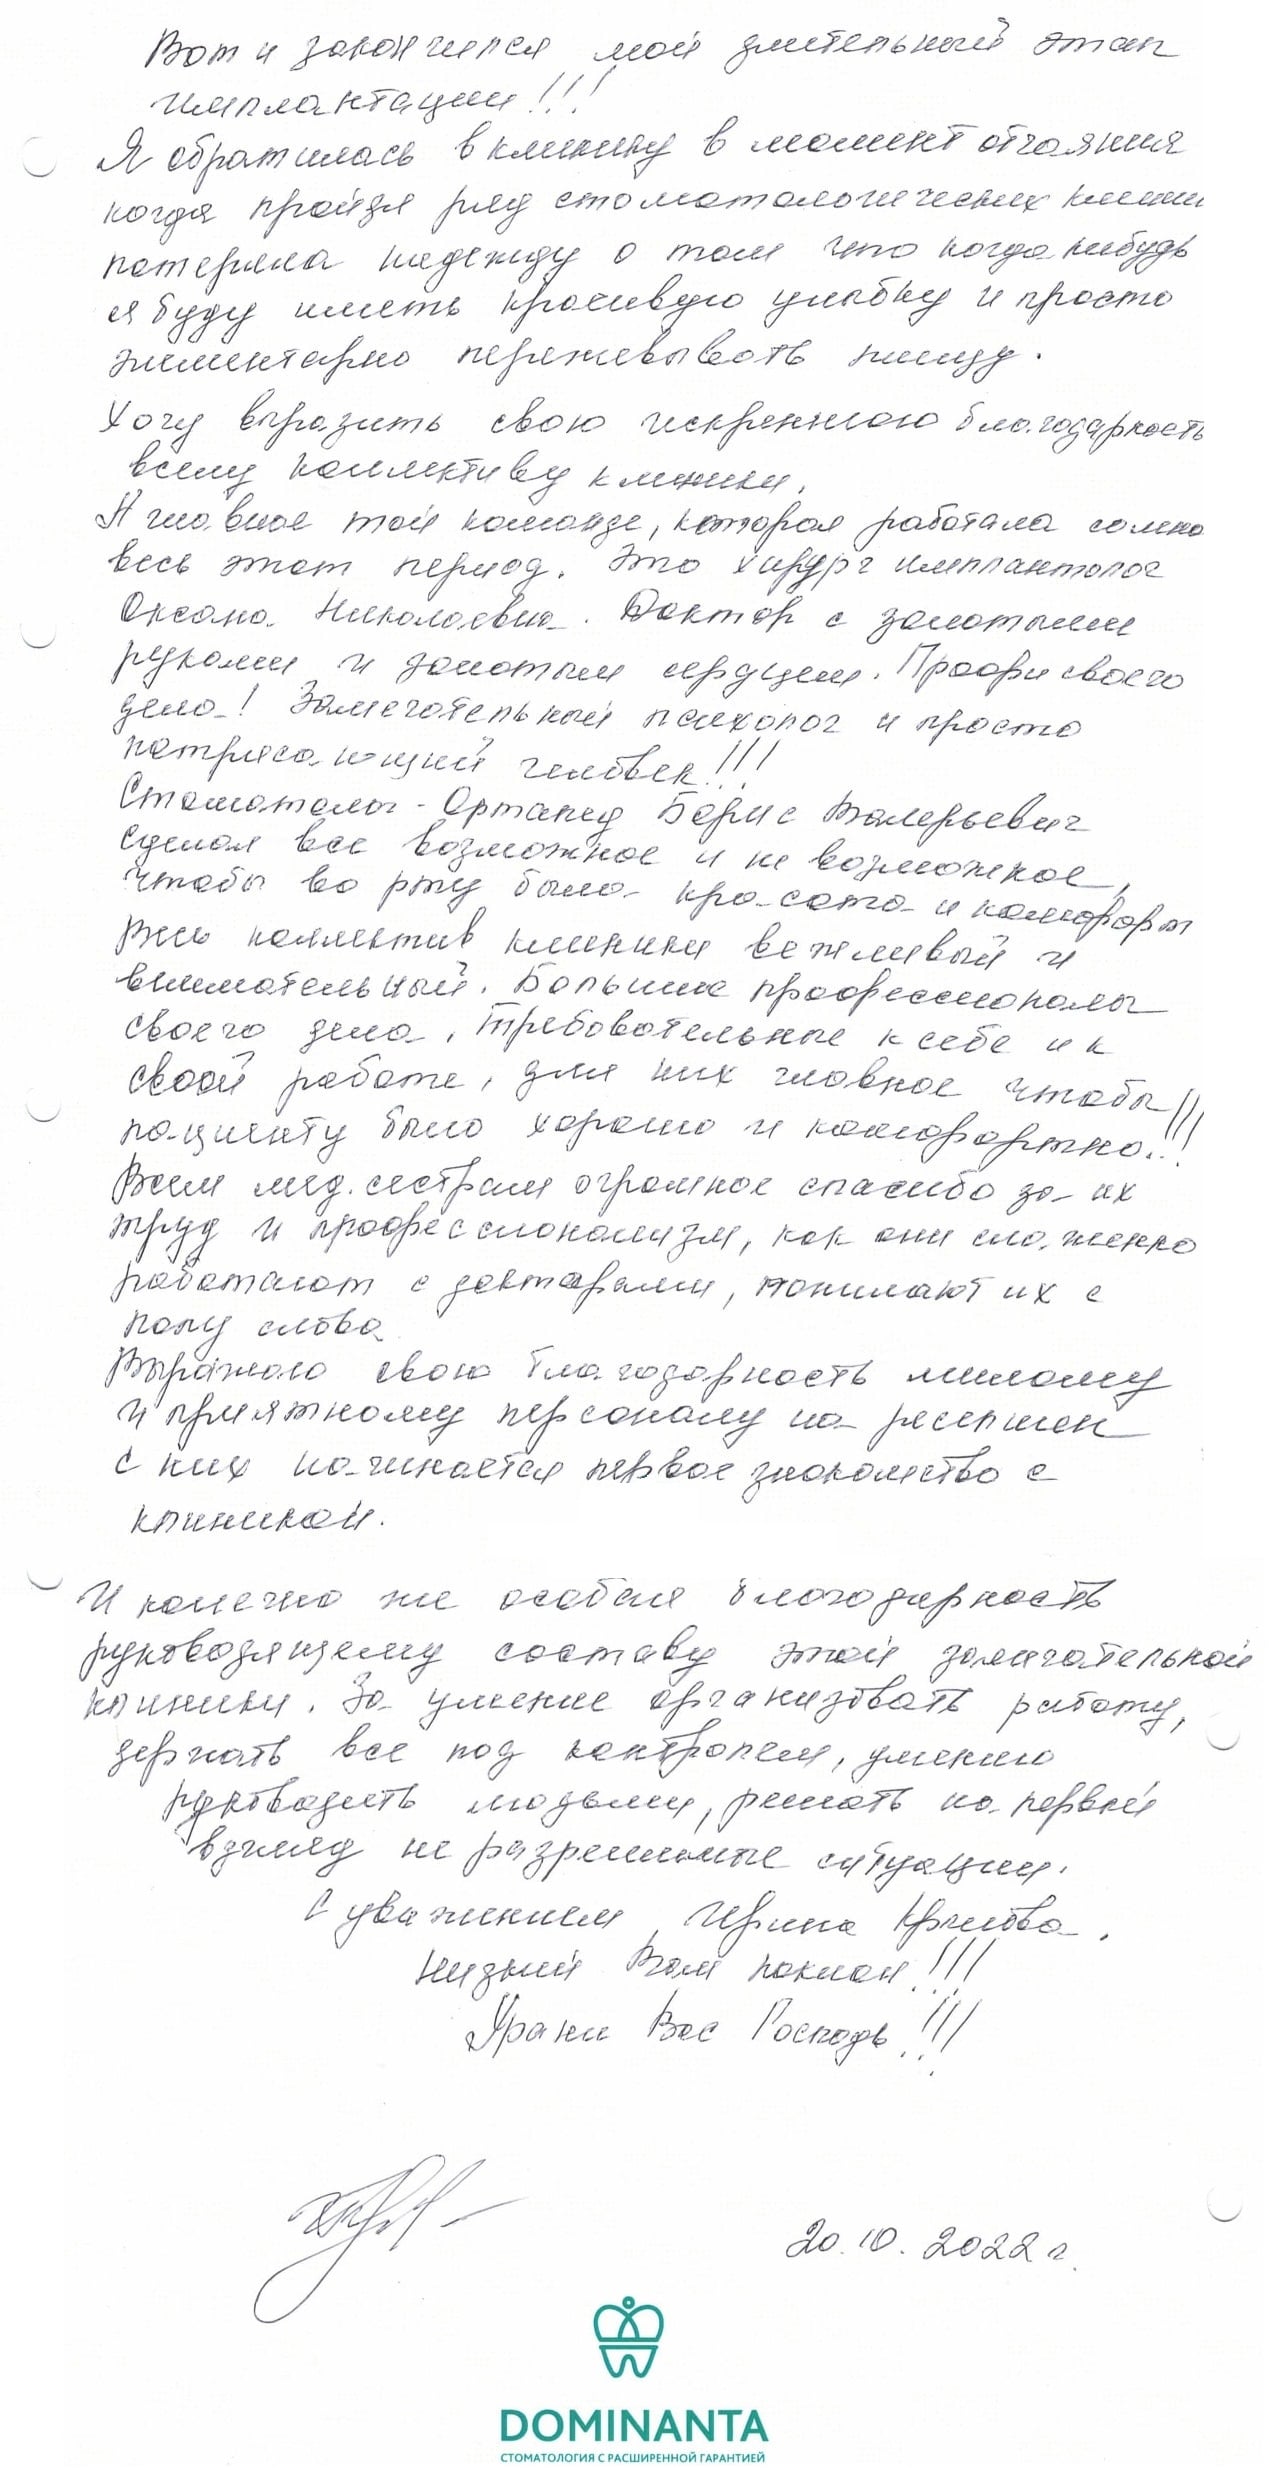 Вот и закончился мой длительный этап
имплантации!!!
Я обратилась в клинику в момент отчаяния
когда пройдя ряд стоматологических клини
потеряла надежду о том что когда нибудь
я буду иметь красивую улыбку и просто
элементарно пережевывать пищу.
Хочу выразить свою искреннюю благодарность
всему коллективу клиники.
А главное той команде, которая работала со мно
весь этот период. Это хирург имплантолог
Оксана Николаевна. Доктор с золотыми
руками и золотым сердцем. Профи своего
дела! Замечательный психолог и просто
потрясающий человек!!!
Стоматолог-Ортапед Борис Валерьевич
сделал все возможное и не возможное,
чтобы во рту была красота и комфорт
Весь коллектив клиники вежливый и
внимательный. Большие профессионалы
своего дела, требовательные к себе и к
своей работе, для них главное чтобы
пациенту было хорошо и комфортно!!!
Всем мед. сестрам огромное спасибо за их
труд и профессионализм, как они слаженно
работают с докторами, понимают их с
полу слова
Выражаю свою благодарность милому
и приятному персоналу на ресепшен
с них начинается первое знакомство с
клиникой.
И конечно же особая благодарность
руководящему составу этой замечательной
клиники. За умение организовать работу,
держать все под контролем, умению
руководить людьми, решать на первый
взгляд не разрешимые ситуации.
С уважением Ирина
Низкий Вам поклон!!!
Храни Вас Господь!!!
20.10.2022 г.
DOMINANTA
СТОМАТОЛОГИЯ С РАСШИРЕННОЙ ГАРАНТИЕЙ